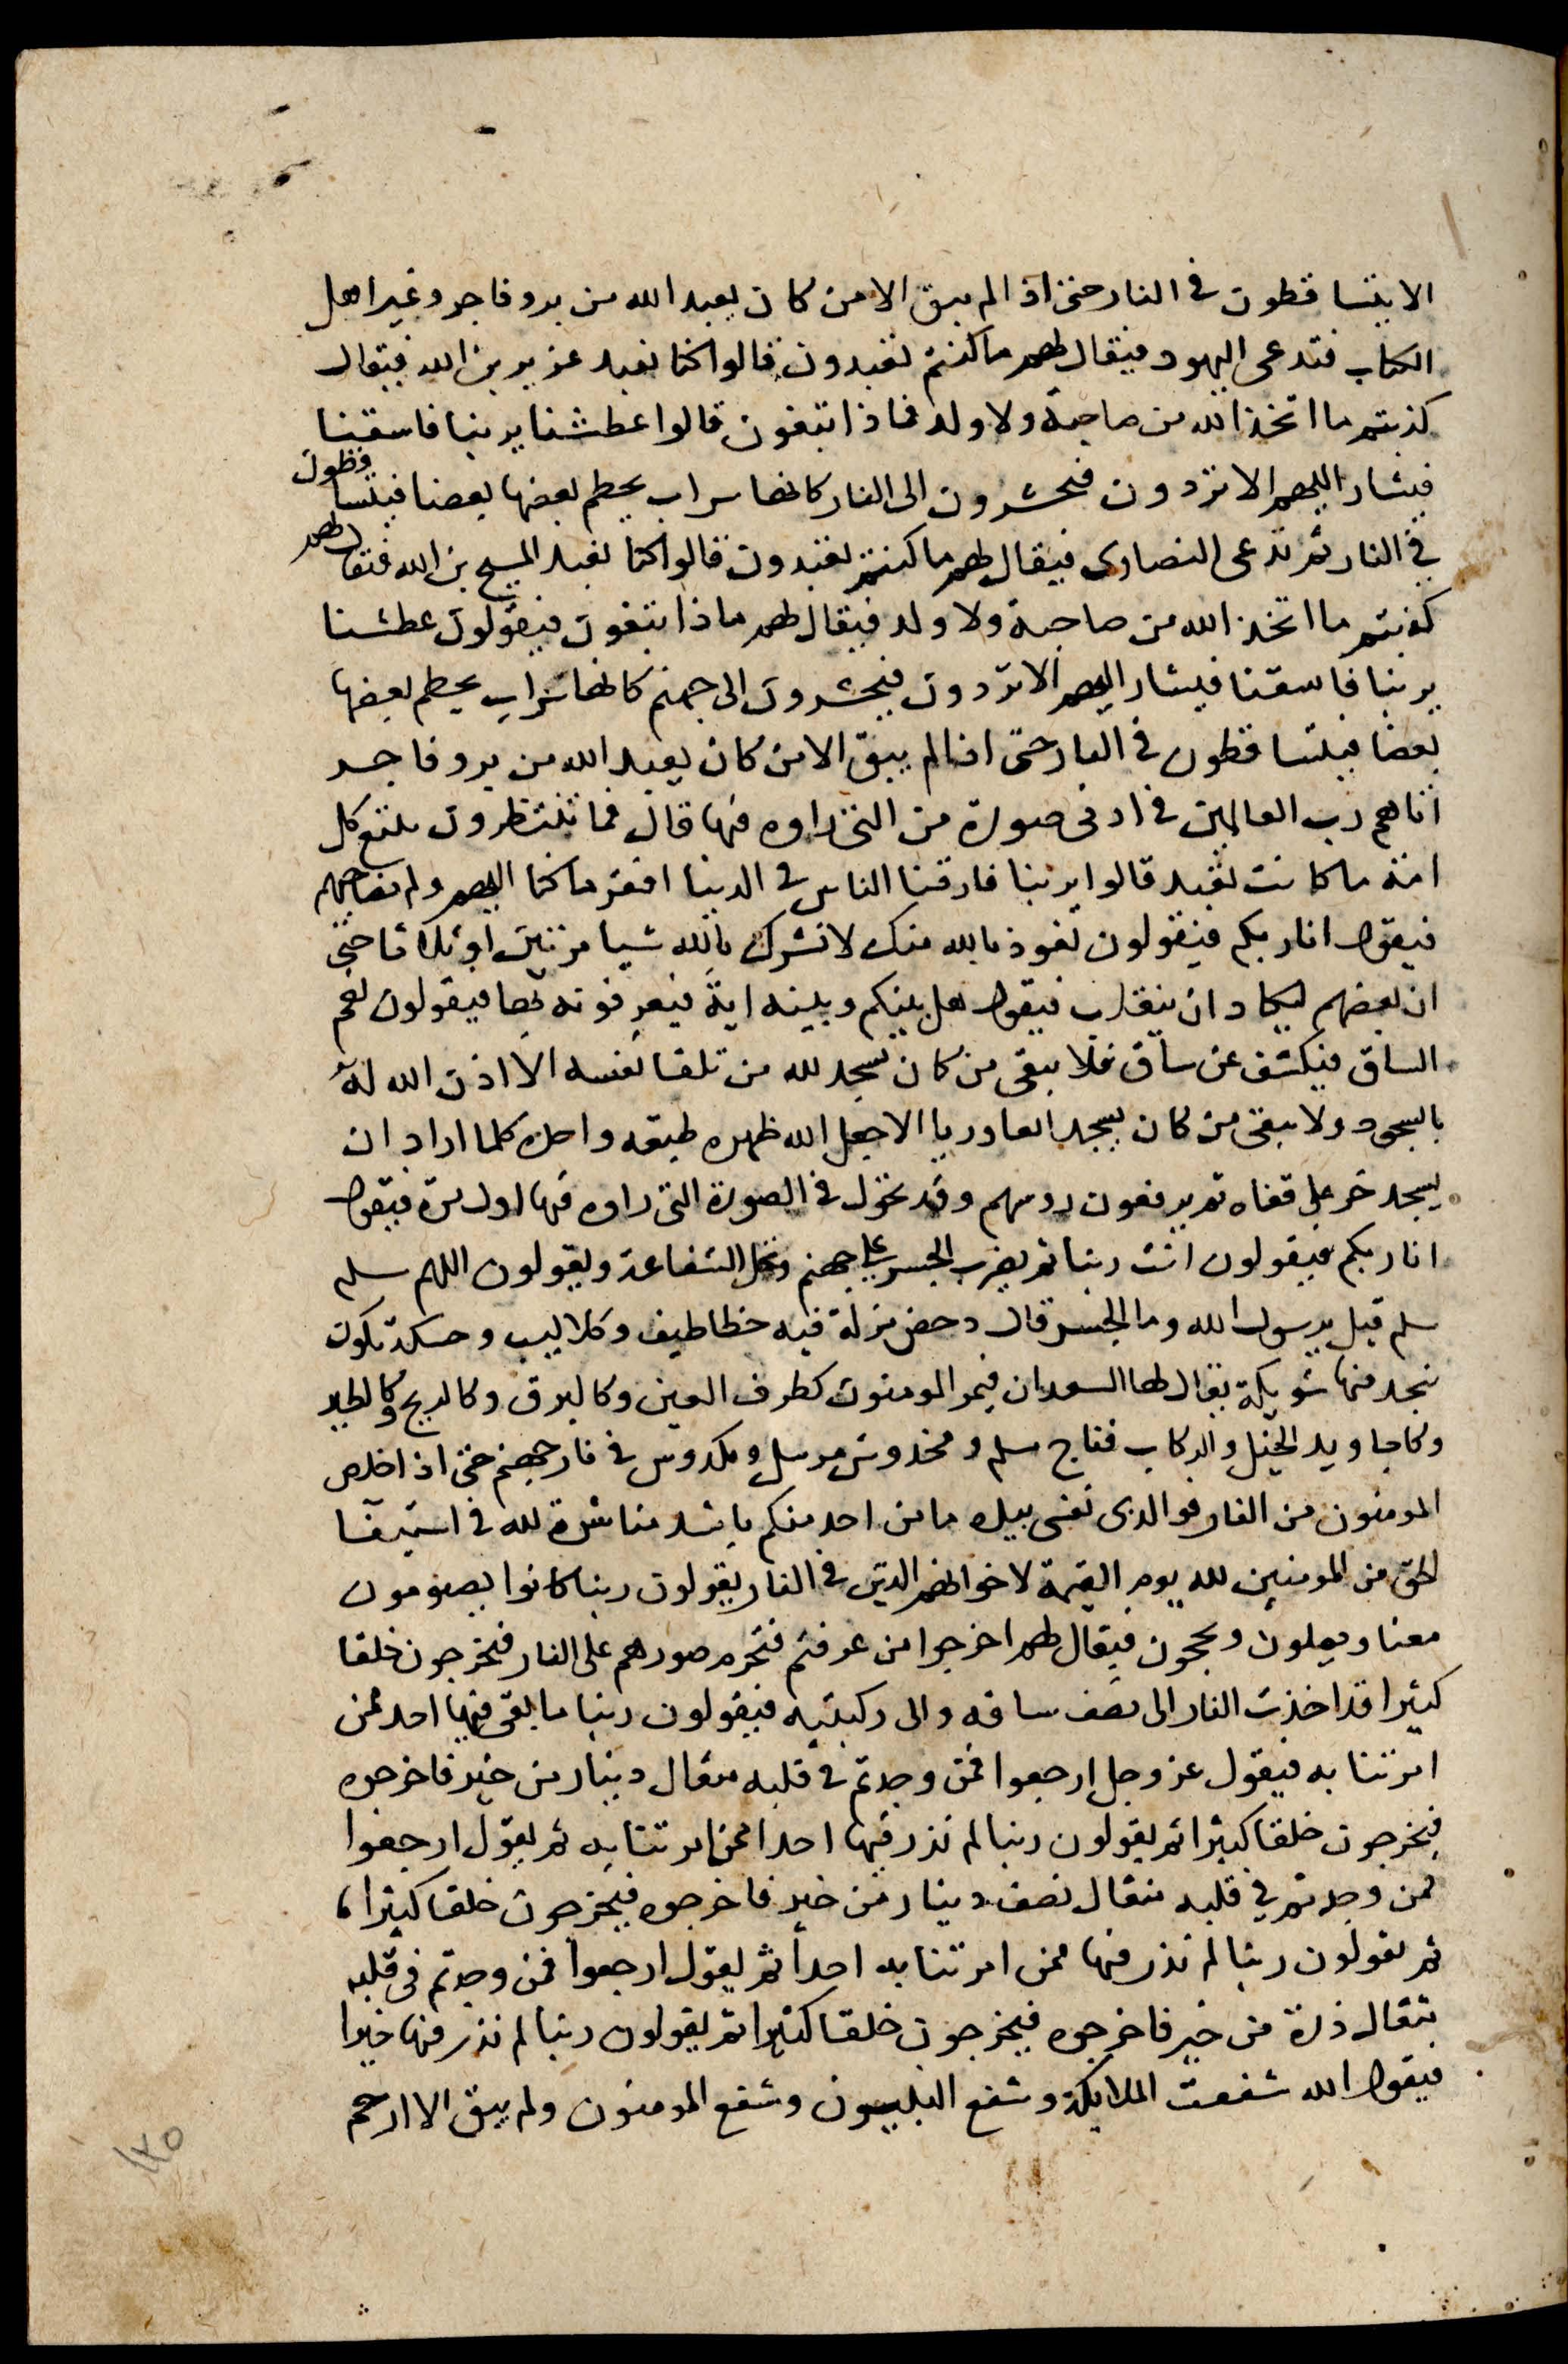 الا يتساقطون في النار حتى اذا لم يبق الا من كان يعبد الله من بر وفاجر وغير اهل
الكتاب فتدعى اليهود فيقال لهم ما كنتم تعبدون قالوا كنا نعبد عزير بن الله فيقال
كذبتم ما اتخذ الله من صاحبة ولا ولد فماذا تبغون قالوا عطشنا يربنا فاسقنا
فيشار اليهم الا تردون فيحشرون الى النار كانها سراب يحطم بعضها بعضا فيتساقطون
في النار ثم تدعى النصارى فيقال لهم ما كنتم تعبدون قالوا كنا نعبد المسيح بن الله فيقال لهم
كذبتم ما اتخذ الله من صاحبة ولا ولد فيقال لهم ماذا تبغون فيقولون عطشنا
يربنا فاسقنا فيشار اليهم الا تردون فيحشرون الى جهنم كانها سراب يحطم بعضها
بعضا فيتساقطون في النار حتى اذا لم يبق الا من كان يعبد الله من بر وفاجر
اتاهم رب العالمين في ادنى صورة من التي راوه فيها قال فما تنتظرون تتبع كل
امة ما كانت تعبد قالوا يربنا فارقنا الناس في الدنيا افقر ما كنا اليهم ولم نصاحبهم
فيقول انا ربكم فيقولون نعوذ بالله منك لا نشرك بالله شيا مرتين او ثلاثا حتى
ان بعضهم ليكاد ان ينقلب فيقول هل بينكم وبينه اية فيعرفونه بها فيقولون نعم
الساق فيكشف عن ساق فلا يبقى من كان يسجد لله من تلقا نفسه الا اذن الله له
بالسجود ولا يبقى من كان يسجد اتقا وريا الا جعل الله ظهره طبقه واحدة كلما اراد ان
يسجد خر على قفاه ثم يرفعون روسهم وقد تحول في الصورة التي راوه فيها اول مرة فيقول
انا ربكم فيقولون انت ربنا ثم يضرب الجسر على جهنم وتحل الشفاعة ويقولون اللهم سلم
سلم قيل يرسول الله وما الجسر قال دحض مزلة فيه خطاطيف وكلاليب وحسكة تكون
بنجد فيها شويكة يقال لها السعدان فيمر المومنون كطرف العين وكالبرق وكالريح وكالطير
وكاجاويد الخيل والركاب فناج مسلم ومخدوش مرسل ومكدوس في نار جهنم حتى اذا خلص
المومنون من النار فوالذي نفسي بيده ما من احد منكم باشد مناشدة لله في استيفا
الحق من المومنين لله يوم القيمة لاخوانهم الذين في النار يقولون ربنا كانوا يصومون
معنا ويصلون ويحجون فيقال لهم اخرجوا من عرفتم فتحرم صورهم على النار فيخرجون خلقا
كثيرا قد اخذت النار الى نصف ساقه والى ركبتيه فيقولون ربنا ما بقى فيها احد ممن
امرتنا به فيقول عز وجل ارجعوا فمن وجدتم في قلبه مثقال دينار من خير فاخرجوه
فيخرجون خلقا كثيرا ثم يقولون ربنا لم نذر فيها احدا ممن امرتنا به ثم يقول ارجعوا
فمن وجدتم في قلبه مثقال نصف دينار من خير فاخرجوه فيخرجون خلقا كثيرا
ثم يقولون ربنا لم نذر فيها ممن امرتنا به احدا ثم يقول ارجعوا فمن وجدتم في قلبه
مثقال ذرة من خير فاخرجوه فيخرجون خلقا كثيرا ثم يقولون ربنا لم نذر فيها خيرا
فيقول الله شفعت الملايكة وشفع النبيون وشفع المومنون ولم يبق الا ارحم